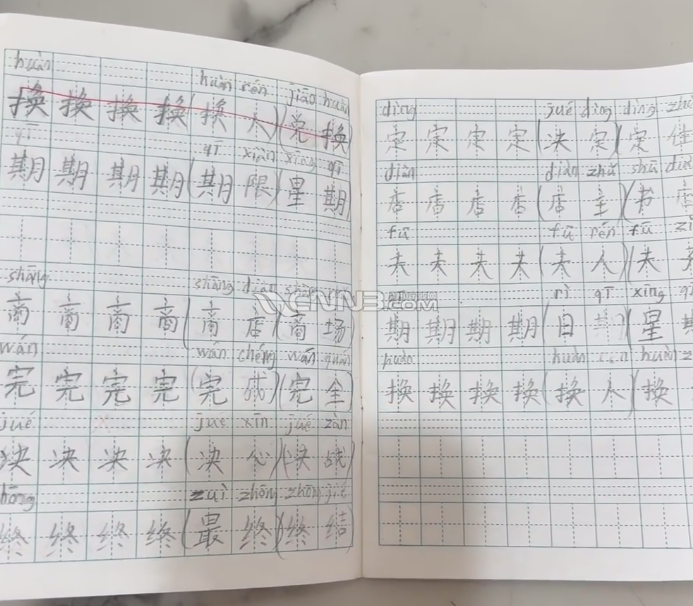 huàn huàn rén jiāo huàn
换 换 换 换 (换 人)(兑 换
qī qī xiàn xīng qī
期 期 期 期 (期 限)(星 期)
shāng shāng diàn shāng
商 商 商 商 (商 店)(商 场
wán wán chéng wán quán
完 完 完 完 (完 成)(完 全
jué jué xīn jué zàn
决 决 决 决 (决 心)(决 战
zuì zhōng zhōng jié
终 终 终 终 (最 终)(终 结
WCNNB.COM
dìng jué dìng dìng
定 定 定 定 (决 定)(定
diàn diàn zhǔ shū
店 店 店 店 (店 主)(书 店
fū fū rén fū
夫 夫 夫 夫 (夫 人)(夫
rì qī xīng
期 期 期 期 (日 期)(星
huàn huàn
换 换 换 换 (换 人)(换